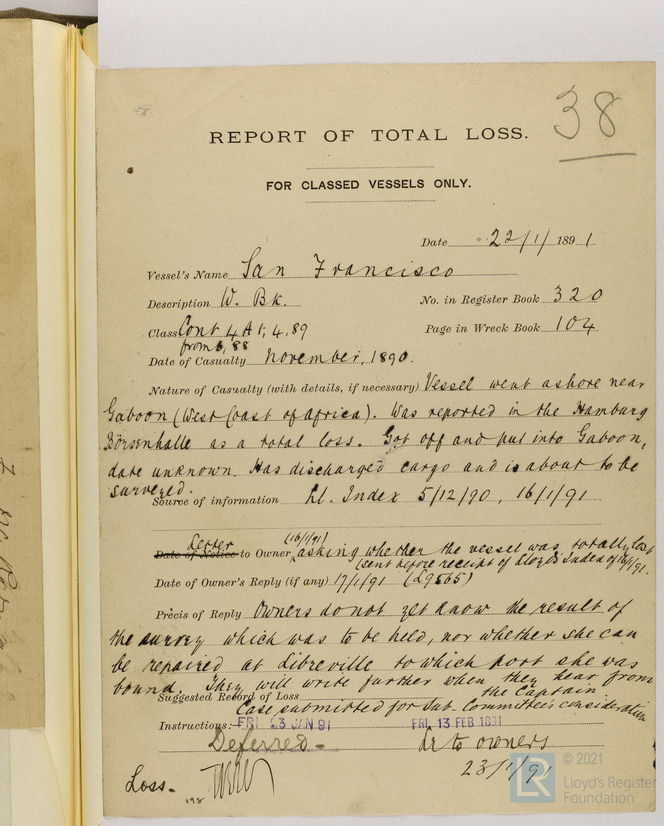 38
REPORT OF TOTAL LOSS.
FOR CLASSED VESSELS ONLY.
Date 22/1/ 1891
Vessel's Name San Francisco
Description W. Bk. No. in Register Book 320
Class Cont 4 A 1, 4,89 Page in Wreck Book 104
from 6,88
Date of Casualty November, 1890.
Nature of Casualty (with details, if necessary) Vessel went ashore near
Gaboon (West Coast of Africa). Was reported in the Hamburg
Börsenhalle as a total loss. Got off and put into Gaboon,
date unknown. Has discharged cargo and is about to be
surveyed.
Source of information Ll. Index 5/12/90, 16/1/91
Letter (16/1/91)
Date of Notice to Owner asking whether the vessel was totally lost
(sent before receipt of Lloyd's Index of 16/1/91.
Date of Owner's Reply (if any) 17/1/91 (L9565)
Précis of Reply Owners do not yet know the result of
the survey which was to be held, nor whether she can
be repaired at Libreville to which port she was
bound. They will write further when they hear from
the Captain.
Suggested Record of Loss
Case submitted for Sub. Committee's consideration
Instructions: FRI 23 JAN 91 FRI 13 FEB 1891
Deferred - Lr to owners
23/1/91
Loss.
© 2021
Lloyd's Register
Foundation
LR